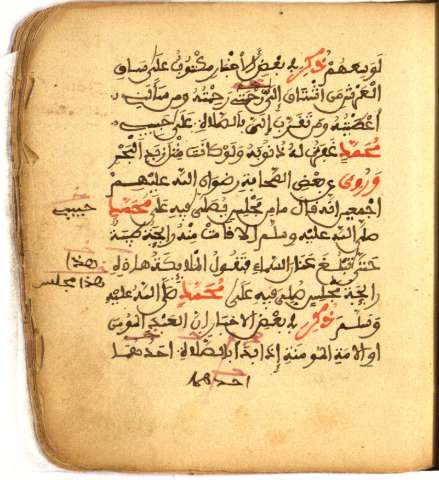 لوسعهم وذكر في بعض الاخبار مكتوب على ساق
العرش من اشتاق الى رحمتي رحمته ومن سألني
اعطيته ومن تقرب الي بالصلاة على حبيبي
محمد غفرت له ذنوبه ولو كانت مثل زبد البحر
وروي عن بعض الصحابة رضوان الله عليهم
اجمعين انه قال ما من مجلس يصلى فيه على محمد
حبيب
صلى الله عليه وسلم الا قامت منه رائحة طيبة
حتى تبلغ عنان السماء فتقول الملائكة هذه
هذا
رائحة مجلس صلي فيه على محمد صلى الله عليه
هذا مجلس
وسلم وذكر في بعض الاخبار ان العبد المومن
او الامة المومنة اذا بدا بالصلاة احدهما
احدهما